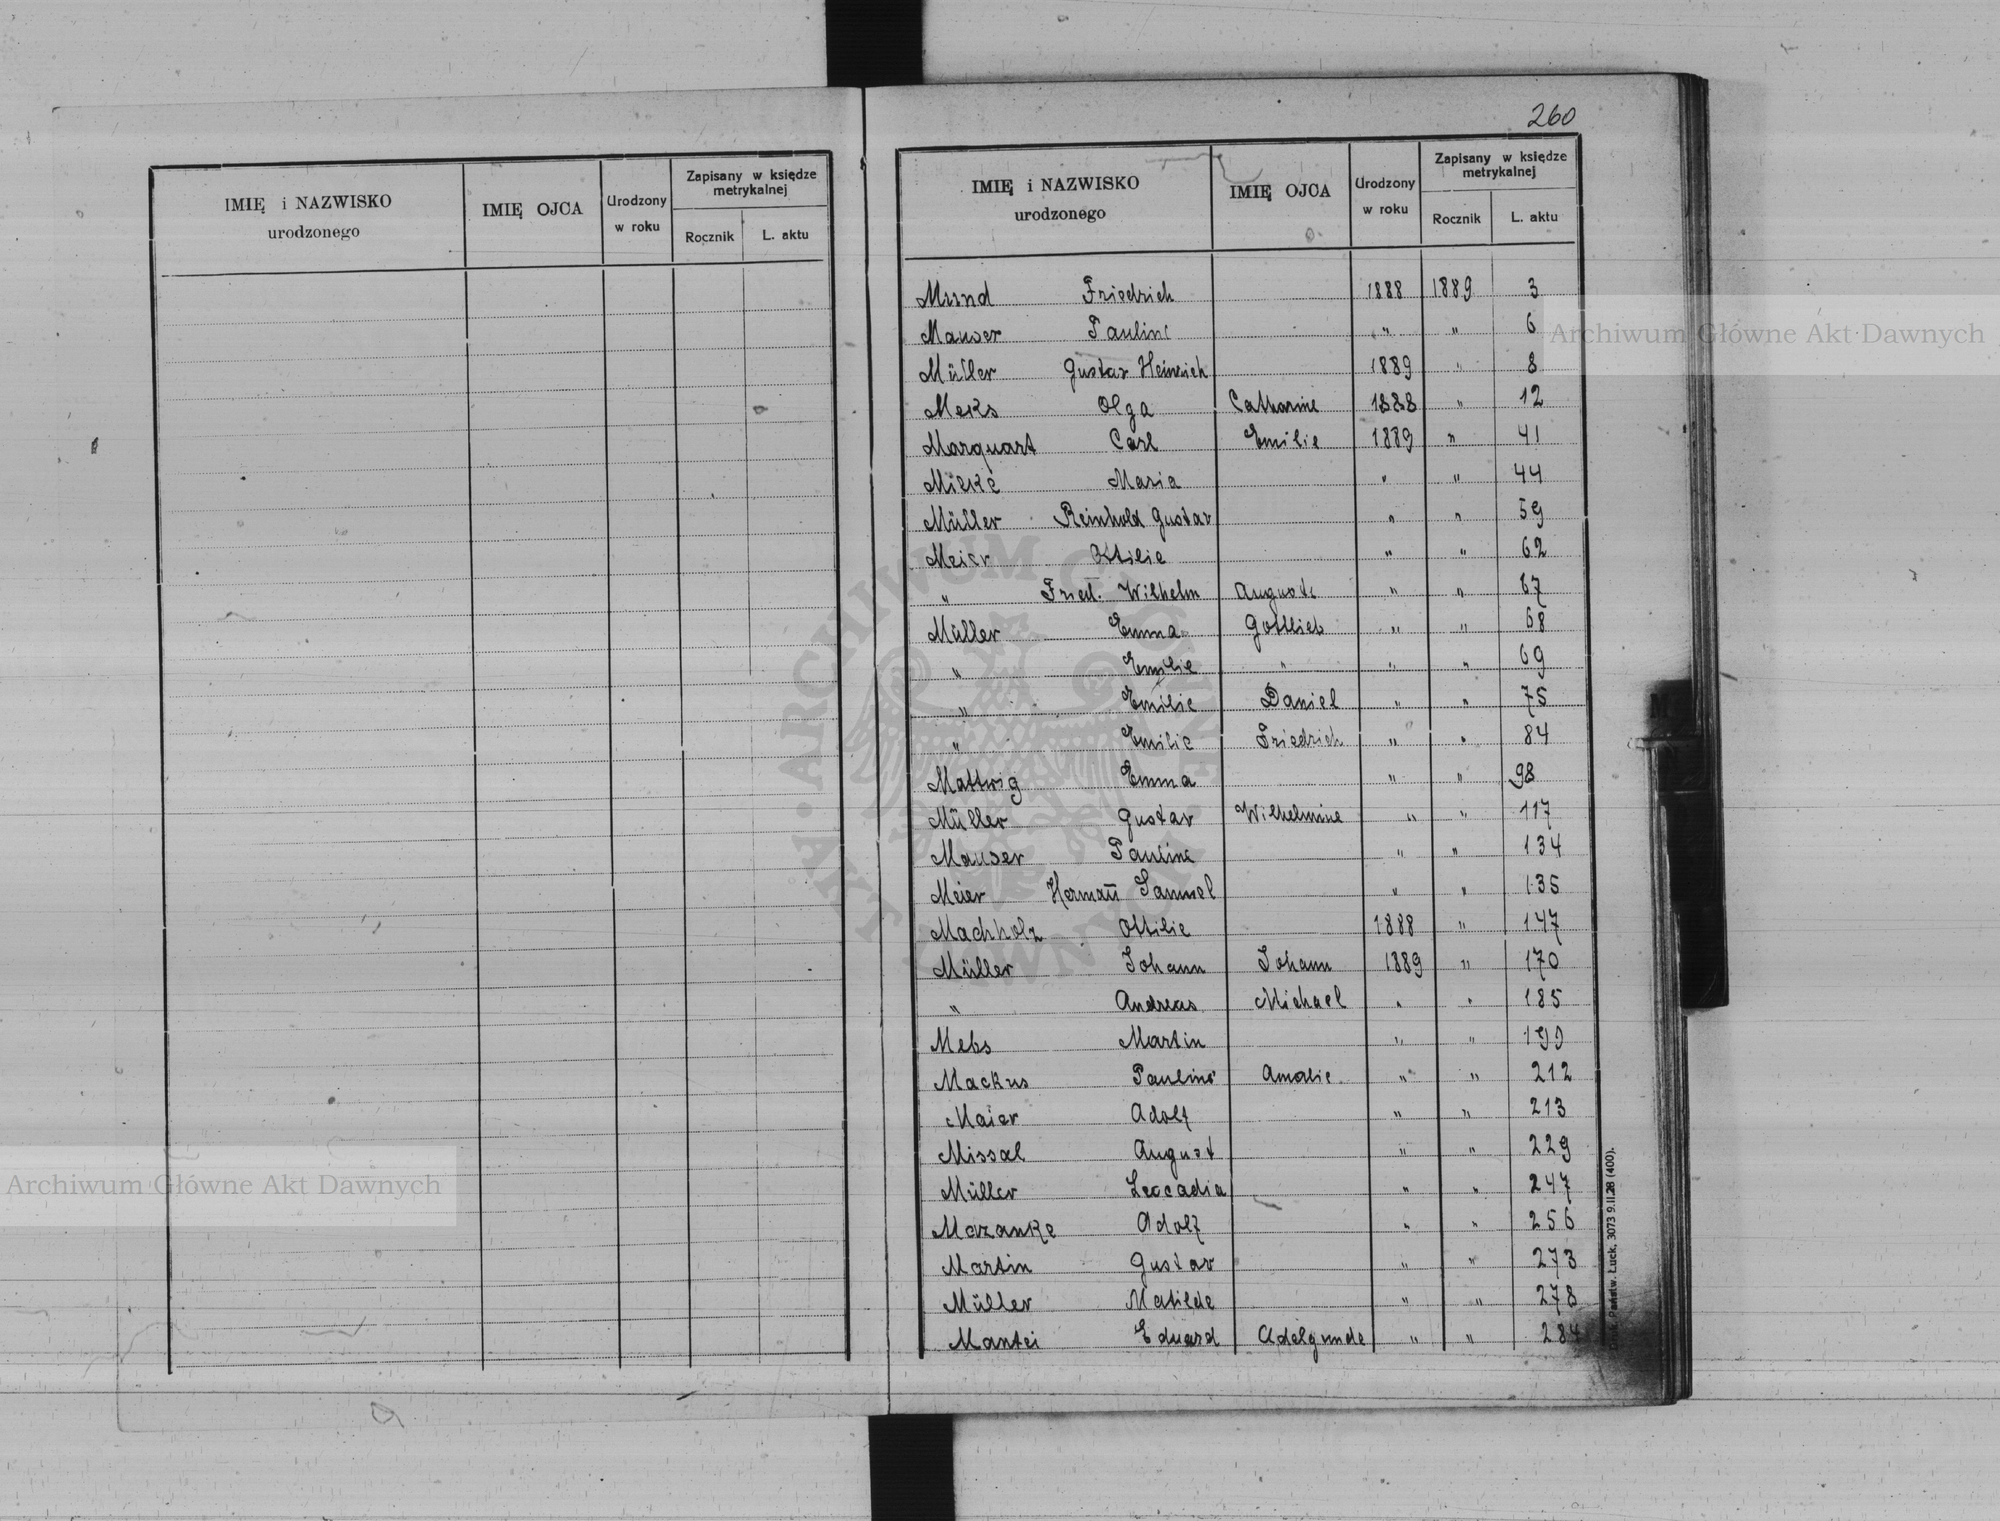 260
IMIĘ i NAZWISKO urodzonego IMIĘ OJCA Urodzony w roku Zapisany w księdze metrykalnej Rocznik L. aktu
IMIĘ i NAZWISKO urodzonego IMIĘ OJCA Urodzony w roku Zapisany w księdze metrykalnej Rocznik L. aktu
Mund Friedrich 1888 1889 3
Mauser Pauline " " 6
Müller Gustav Heinrich 1889 " 8
Meks Olga Catharine 1888 " 12
Marquart Carl Emilie 1889 " 41
Mielke Maria " " 44
Müller Reinhold Gustav " " 59
Meier Ottilie " " 62
" Fried. Wilhelm Auguste " " 67
Müller Emma Gottlieb " " 68
" Emilie " " " 69
" Emilie Daniel " " 75
" Emilie Friedrich " " 84
Mattwig Emma " " 98
Müller Gustav Wilhelmine " " 117
Mauser Pauline " " 134
Meier Hermañ Samuel " " 135
Machholz Ottilie 1888 " 147
Müller Johann Johann 1889 " 170
" Andreas Michael " " 185
Mebs Martin " " 199
Mackus Pauline Amalie " " 212
Maier Adolf " " 213
Missal August " " 229
Müller Leocadia " " 247
Mazanke Adolf " " 256
Martin Gustav " " 273
Müller Matilde " " 278
Mantei Eduard Adelgunde " " 284
Państw. Łuck, 3073 9.II.28 (400).
Archiwum Główne Akt Dawnych
Archiwum Główne Akt Dawnych
ARCHIWUM GŁÓWNE AKT DAWNYCH